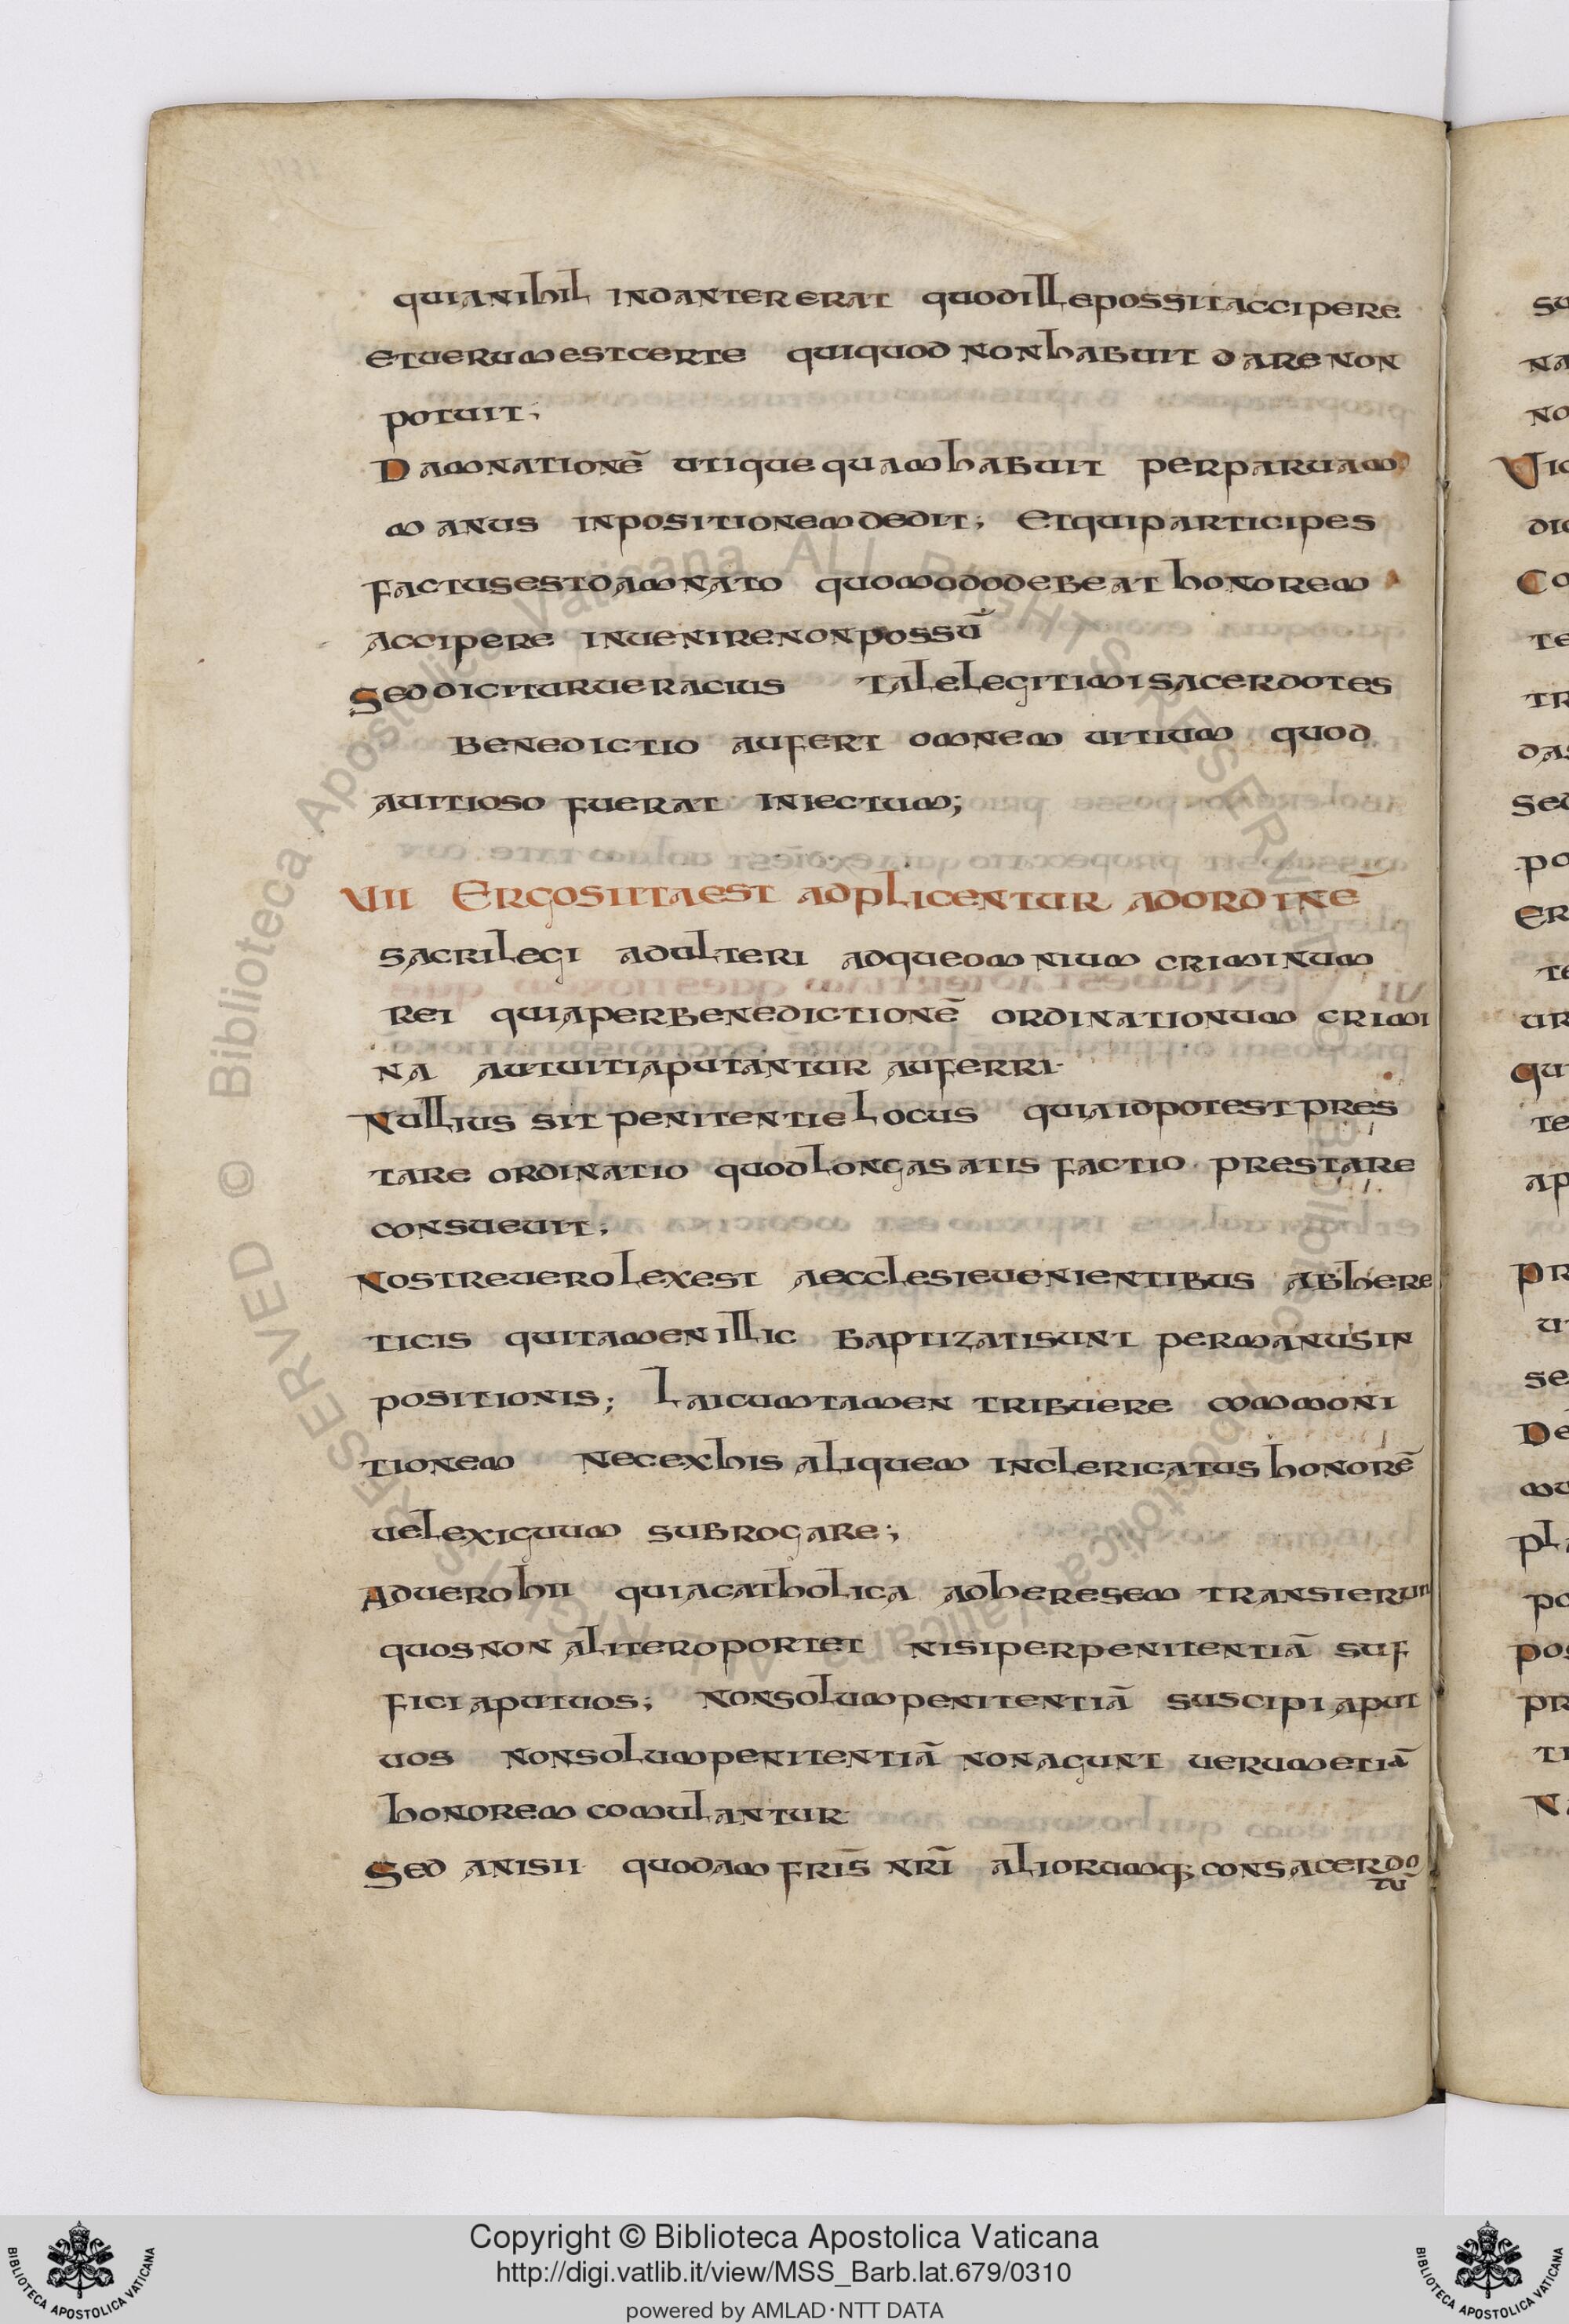 quia nihil in danter erat quod ille possit accipere
et uerum est certe qui quod non habuit dare non
potuit;
Damnationē utique quam habuit per paruam
manus inpositionem dedit; Et qui participes
factus est damnato quomodo debeat honorem
accipere inuenire non possū
Sed dicitur ueracius tale legitimi sacerdotes
benedictio aufert omnem uitium quod
a uitioso fuerat iniectum;
VII Ergo si ita est adplicentur ad ordinē
sacrilegi adulteri adque omnium criminum
rei quia per benedictionē ordinationum crimi
na aut uitia putantur auferri.
Nullius sit penitentie locus quia id potest pres
tare ordinatio quod longa satisfactio prestare
consueuit;
Nostre uero lex est aecclesie uenientibus ab here
ticis qui tamen illic baptizati sunt per manus in
positionis; laicum tamen tribuere commoni
tionem nec ex his aliquem in clericatus honorē
uel exiguum subrogare;
Ad uero hii qui a catholica ad heresem transierun
quos non aliter oportet nisi per penitentiā suf
fici aput uos; non solum penitentiā suscipi aput
uos non solum penitentiā non agunt uerum etiā
honorem comulantur
Sed anisii quodam fr̄is nr̄i aliorumq; consacerdo
tū
su
na
no
Vic
dic
Co
te
tr
das
sed
po
er
te
ur
qu
te
ap
pr
u
se
De
mu
pl
po
pos
pr
ti
N
Copyright © Biblioteca Apostolica Vaticana
http://digi.vatlib.it/view/MSS_Barb.lat.679/0310
powered by AMLAD·NTT DATA
BIBLIOTECA APOSTOLICA VATICANA
BIBLIOTECA APOSTOLICA VATICANA